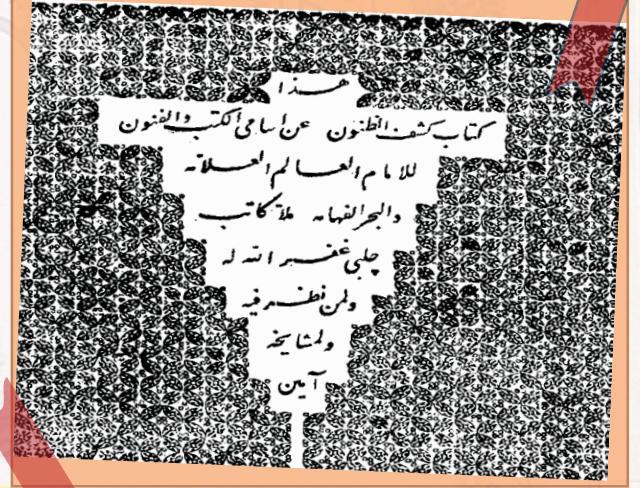 هذا
كتاب كشف الظنون عن اسامى الكتب والفنون
للامام العالم العلامه
والبحر الفهامه ملا كاتب
چلبى غفر الله له
ولمن نظر فيه
ولمشايخه
آمين